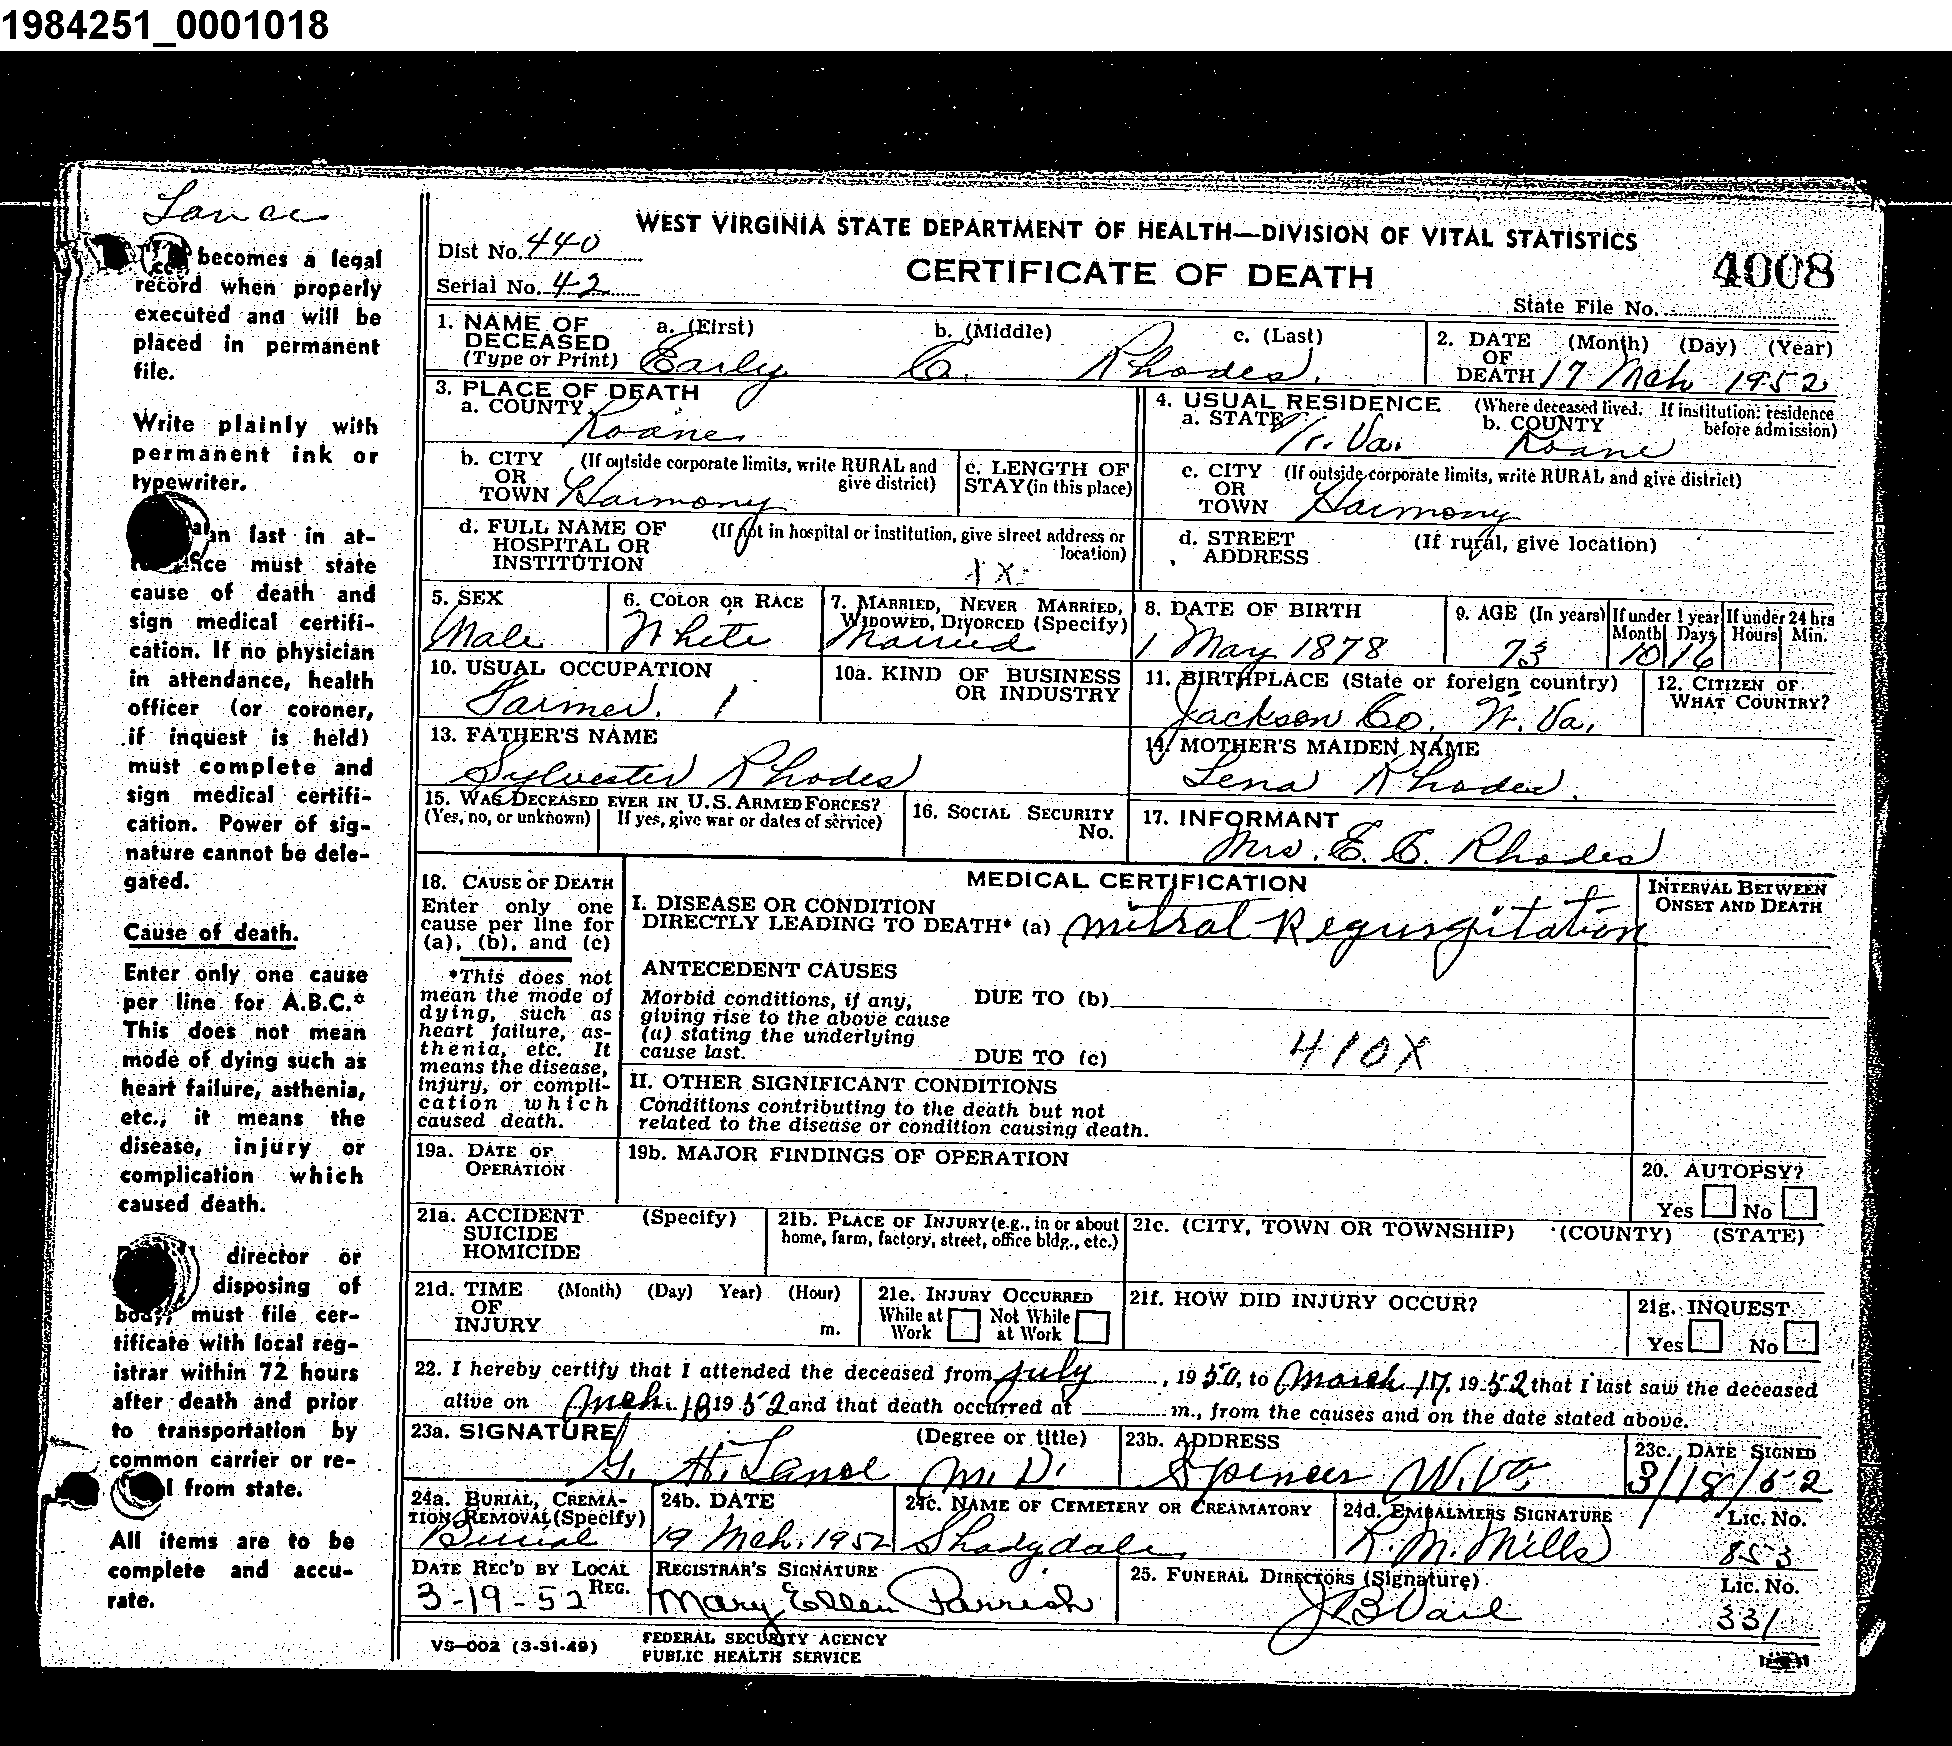 1984251_0001018
Lance
becomes a legal
record when properly
executed and will be
placed in permanent
file.
Write plainly with
permanent ink or
typewriter.
an last in at-
must state
cause of death and
sign medical certifi-
cation. If no physician
in attendance, health
officer (or coroner,
if inquest is held)
must complete and
sign medical certifi-
cation. Power of sig-
nature cannot be dele-
gated.
Cause of death.
Enter only one cause
per line for A.B.C.*
This does not mean
mode of dying such as
heart failure, asthenia,
etc., it means the
disease, injury or
complication which
caused death.
director or
disposing of
body, must file cer-
tificate with local reg-
istrar within 72 hours
after death and prior
to transportation by
common carrier or re-
l from state.
All items are to be
complete and accu-
rate.
WEST VIRGINIA STATE DEPARTMENT OF HEALTH—DIVISION OF VITAL STATISTICS
Dist No. 440
CERTIFICATE OF DEATH
4008
Serial No. 42
State File No.
1. NAME OF DECEASED (Type or Print) a. (First) b. (Middle) c. (Last)
Early C. Rhodes.
2. DATE OF DEATH (Month) (Day) (Year)
17 Mch 1952
3. PLACE OF DEATH
a. COUNTY Roane
4. USUAL RESIDENCE (Where deceased lived. If institution: residence before admission)
a. STATE W. Va. b. COUNTY Roane
b. CITY OR TOWN (If outside corporate limits, write RURAL and give district) Harmony
c. LENGTH OF STAY (in this place)
c. CITY OR TOWN (If outside corporate limits, write RURAL and give district) Harmony
d. FULL NAME OF HOSPITAL OR INSTITUTION (If not in hospital or institution, give street address or location)
1X
d. STREET ADDRESS (If rural, give location)
5. SEX Male
6. COLOR OR RACE White
7. MARRIED, NEVER MARRIED, WIDOWED, DIVORCED (Specify) Married
8. DATE OF BIRTH 1 May 1878
9. AGE (In years) 73
If under 1 year Month 10 Days 16
If under 24 hrs Hours Min.
10. USUAL OCCUPATION Farmer. 1
10a. KIND OF BUSINESS OR INDUSTRY
11. BIRTHPLACE (State or foreign country) Jackson Co. W. Va.
12. CITIZEN OF WHAT COUNTRY?
13. FATHER'S NAME Sylvester Rhodes
14. MOTHER'S MAIDEN NAME Lena Rhodes.
15. WAS DECEASED EVER IN U.S. ARMED FORCES? (Yes, no, or unknown) If yes, give war or dates of service)
16. SOCIAL SECURITY No.
17. INFORMANT Mrs. E. C. Rhodes
MEDICAL CERTIFICATION
18. CAUSE OF DEATH
Enter only one
cause per line for
(a), (b), and (c)
*This does not
mean the mode of
dying, such as
heart failure, as-
thenia, etc. It
means the disease,
injury, or compli-
cation which
caused death.
I. DISEASE OR CONDITION
DIRECTLY LEADING TO DEATH* (a) Mitral Regurgitation
INTERVAL BETWEEN ONSET AND DEATH
ANTECEDENT CAUSES
Morbid conditions, if any,
giving rise to the above cause
(a) stating the underlying
cause last.
DUE TO (b)
DUE TO (c)
410X
II. OTHER SIGNIFICANT CONDITIONS
Conditions contributing to the death but not
related to the disease or condition causing death.
19a. DATE OF OPERATION
19b. MAJOR FINDINGS OF OPERATION
20. AUTOPSY?
Yes No
21a. ACCIDENT SUICIDE HOMICIDE (Specify)
21b. PLACE OF INJURY (e.g., in or about home, farm, factory, street, office bldg., etc.)
21c. (CITY, TOWN OR TOWNSHIP) (COUNTY) (STATE)
21d. TIME OF INJURY (Month) (Day) Year) (Hour) m.
21e. INJURY OCCURRED
While at Work Not While at Work
21f. HOW DID INJURY OCCUR?
21g. INQUEST
Yes No
22. I hereby certify that I attended the deceased from July, 1950, to March 17, 1952 that I last saw the deceased
alive on Mch. 1952 and that death occurred at m., from the causes and on the date stated above.
23a. SIGNATURE (Degree or title) G. H. Lance M.D.
23b. ADDRESS Spencer W.Va.
23c. DATE SIGNED 3/18/52
24a. BURIAL, CREMATION REMOVAL (Specify) Burial
24b. DATE 19 Mch. 1952
24c. NAME OF CEMETERY OR CREAMATORY Shadydale
24d. EMBALMERS SIGNATURE R. M. Mills
Lic. No. 853
DATE REC'D BY LOCAL REG. 3-19-52
REGISTRAR'S SIGNATURE Mary Ellen Parrish
25. FUNERAL DIRECTORS (Signature) J B Vail
Lic. No. 331
VS-002 (3-31-49)
FEDERAL SECURITY AGENCY
PUBLIC HEALTH SERVICE